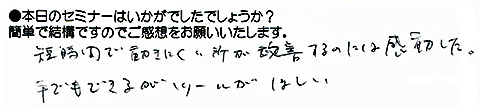 ●本日のセミナーはいかがでしたでしょうか？
簡単で結構ですのでご感想をお願いいたします。
短時間で動きにくい所が改善するのには感動した。
手でもできるがツールがほしい